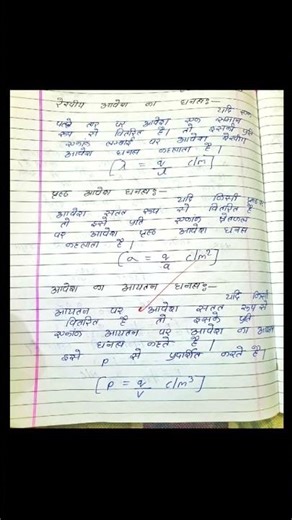 रेखीय आवेश का घनत्व :-
यदि एक
पतले तार पर आवेश एक समान
रूप से वितरित है। तो इसकी प्रति
एकांक लम्बाई पर आवेश रेखीय
आवेश घनत्व कहलाता है।
[λ = q/l c/m]
पृष्ठ आवेश घनत्व :-
यदि किसी पृष्ठ पर
आवेश सतत रूप से वितरित है
तो इसे प्रति एकांक क्षेत्रफल
पर आवेश पृष्ठ आवेश घनत्व
कहलाता है।
[α = q/a c/m²]
आवेश का आयतन घनत्व :-
यदि किसी
आयतन पर आवेश सतत रूप से
वितरित है तो इसके प्रति
एकांक आयतन पर आवेश का आयतन
घनत्व कहते है।
इसे p से प्रदर्शित करते है।
[p = q/v c/m³]